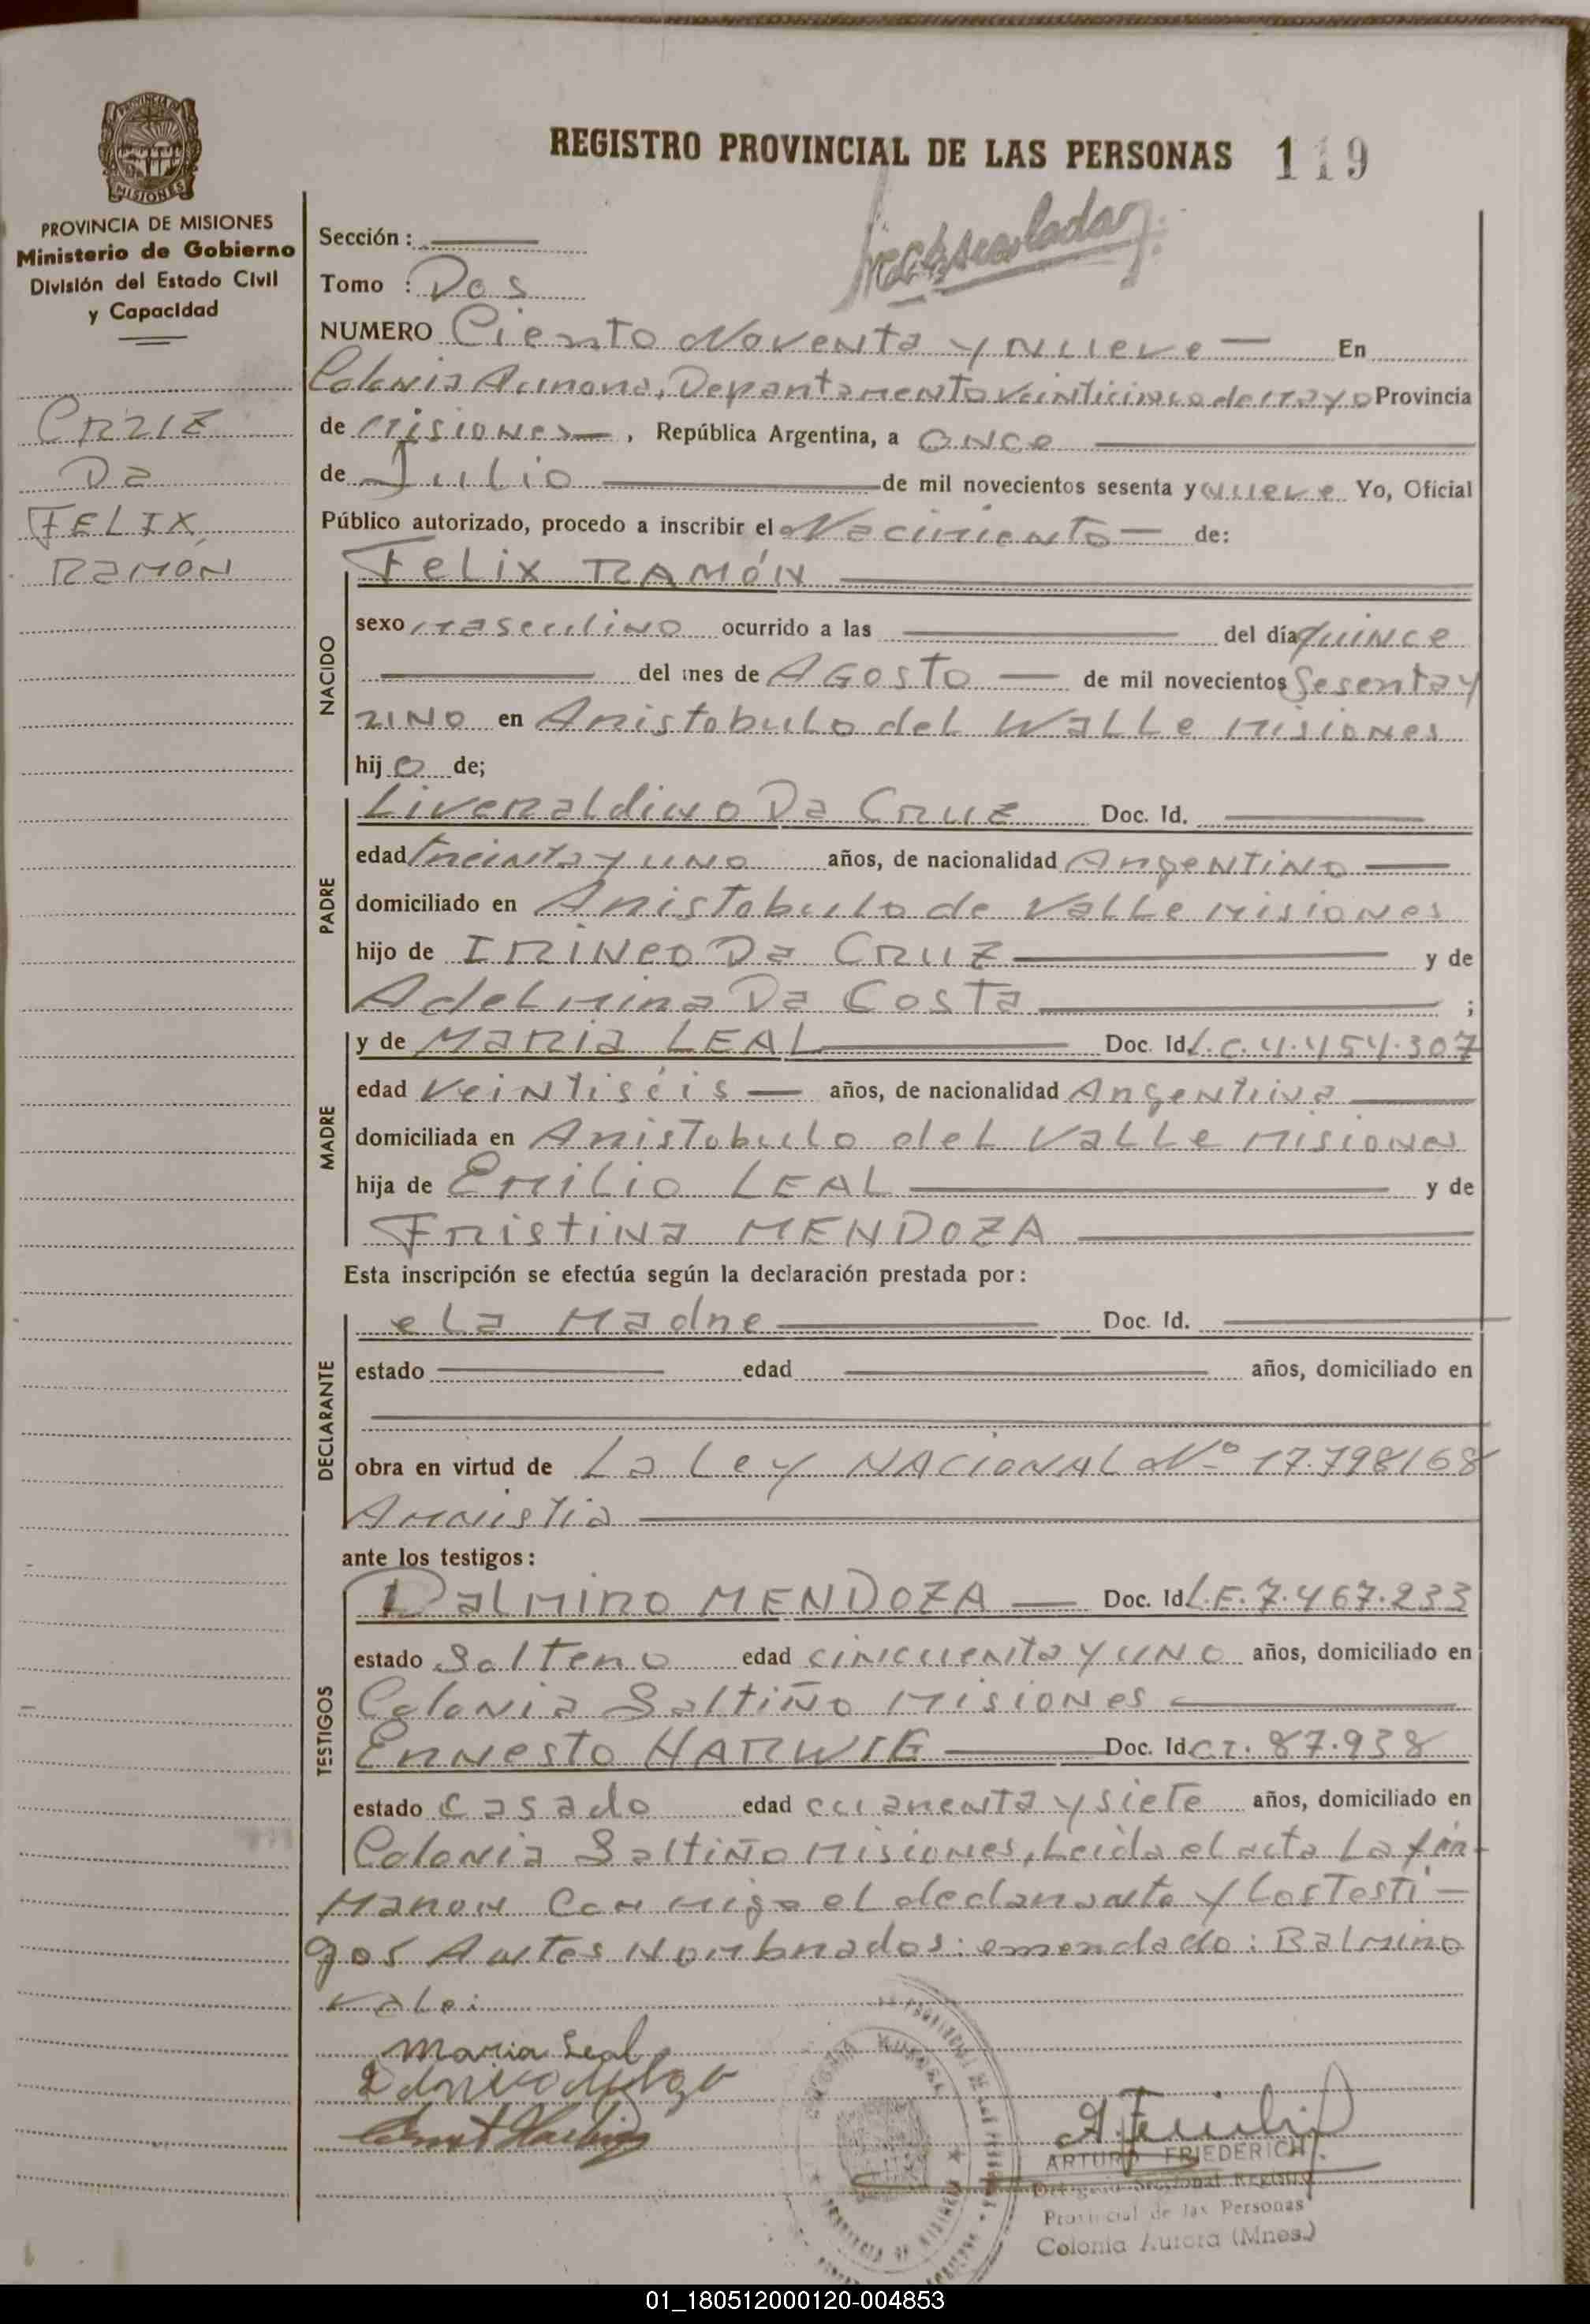 REGISTRO PROVINCIAL DE LAS PERSONAS 119
PROVINCIA DE MISIONES
MISIONES
PROVINCIA DE MISIONES
Ministerio de Gobierno
División del Estado Civil
y Capacidad
CRUZ
Da
FELIX
RAMÓN
Sección :
Tomo : Dos
NUMERO Ciento Noventa y Nueve — En
Colonia Aurora, Departamento Veinticinco de Mayo Provincia
de Misiones — , República Argentina, a Once
de Julio de mil novecientos sesenta y nueve Yo, Oficial
Público autorizado, procedo a inscribir el Nacimiento — de:
Felix RAMÓN
NACIDO
sexo masculino ocurrido a las del día quince
del mes de AGOSTO — de mil novecientos sesenta y
uno en Aristobulo del Walle Misiones
hij o de;
PADRE
Liveraldino Da Cruz Doc. Id.
edad treinta y uno años, de nacionalidad Argentino —
domiciliado en Aristobulo de Valle Misiones
hijo de Irineo Da Cruz y de
Adelmina Da Costa ;
MADRE
y de Maria LEAL Doc. Id L.C. 4.454.307
edad Veintiséis — años, de nacionalidad Argentina
domiciliada en Aristobulo del Valle Misiones
hija de Emilio LEAL y de
Fristina MENDOZA
Esta inscripción se efectúa según la declaración prestada por:
DECLARANTE
e La Madre Doc. Id.
estado edad años, domiciliado en
obra en virtud de La Ley NACIONAL Nº 17.798/68
Amnistia
ante los testigos:
TESTIGOS
Dalmiro MENDOZA — Doc. Id L.E. 7.467.233
estado SolTero edad cincuenta y uno años, domiciliado en
Colonia Saltiño Misiones
Ernesto HARWIG Doc. Id C.I. 87.938
estado Casado edad cuarenta y siete años, domiciliado en
Colonia Saltiño Misiones, Leida el acta La fir-
maron Conmigo el declarante y Los Testi-
gos Antes Nombrados: emendado: Balmiro
vale:
Maria Leal
ARTURO FRIEDERICH
Delegado Seccional Registro
Provincial de las Personas
Colonia Aurora (Mnes.)
01_180512000120-004853